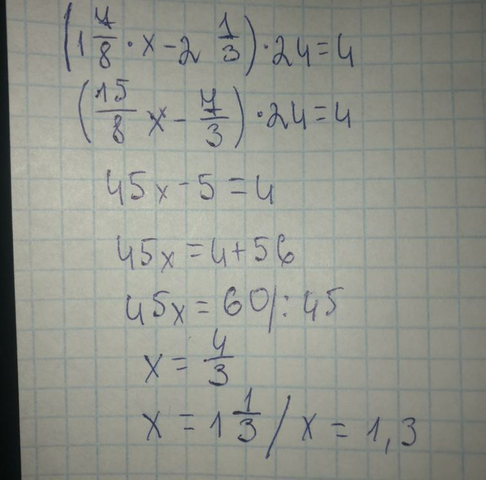 (1 7/8 · x - 2 1/3) · 24 = 4
(15/8 x - 7/3) · 24 = 4
45x - 5 = 4
45x = 4 + 56
45x = 60 /: 45
x = 4/3
x = 1 1/3 / x = 1,3